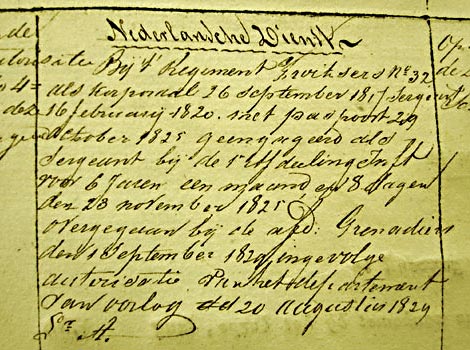 de
Nederlansche Dienst
Op
Bij 't Regiment Zwitsers No 32
als korporaal 26 september 1817 Sergeant
16 februarij 1820. met paspoort 29
October 1825 geengageerd als
Sergeant bij de 1e Afdeeling Inft
voor 6 Jaren een maand en 8 dagen
den 23 november 1825
overgegaan bij de afd: Grenadiers
den 1 September 1829 ingevolge
autorisatie van het departement
van oorlog dd 20 augustus 1829